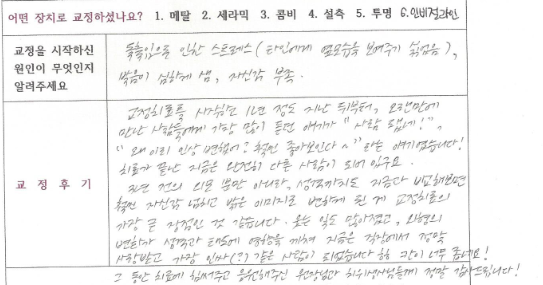 어떤 장치로 교정하셨나요? 1. 메탈 2. 세라믹 3. 콤비 4. 설측 5. 투명 6. 인비절라인
교정을 시작하신
원인이 무엇인지
알려주세요
돌출입으로 인한 스트레스 (타인에게 옆모습을 보여주기 싫었음),
발음이 심하게 샘, 자신감 부족.
교정후기
교정치료를 시작하고 1년 정도 지난 뒤부터, 오랜만에
만난 사람들에게 가장 많이 듣던 얘기가 "사람 됐네!",
"왜이리 인상 변했어? 훨씬 좋아보인다~" 라는 얘기였습니다!
치료가 끝난 지금은 완전히 다른 사람이 되어 있구요.
치료 전의 외모 뿐만 아니라, 성격까지도 지금과 비교해보면
훨씬 자신감 넘치고 밝은 이미지로 변하게 된 게 교정치료의
가장 큰 장점인 것 같습니다. 웃는 일도 많아졌고, 외형의
변화가 성격과 태도에 영향을 끼쳐 지금은 직장에서 정말
사랑받고 가장 인싸(?) 같은 사람이 되었습니다 하하 기분 너무 좋네요!
그 동안 치료에 힘써주고 응원해주신 원장님과 치위생사님들께 정말 감사드립니다!